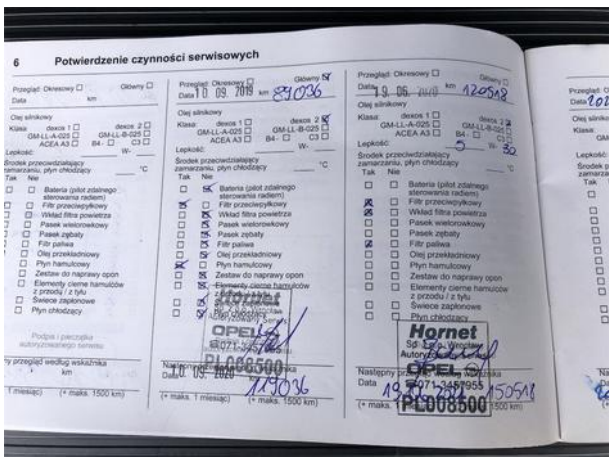 6 Potwierdzenie czynności serwisowych
Przegląd: Okresowy Główny
Data km
Olej silnikowy
Klasa: dexos 1 dexos 2
GM-LL-A-025 GM-LL-B-025
ACEA A3 B4- C3
Lepkość: W-
Środek przeciwdziałający
zamarzaniu, płyn chłodzący °C
Tak Nie
Bateria (pilot zdalnego
sterowania radiem)
Filtr przeciwpyłkowy
Wkład filtra powietrza
Pasek wielorowkowy
Pasek zębaty
Filtr paliwa
Olej przekładniowy
Płyn hamulcowy
Zestaw do naprawy opon
Elementy cierne hamulców
z przodu / z tyłu
Świece zapłonowe
Płyn chłodzący
Podpis i pieczątka
autoryzowanego serwisu
przegląd według wskaźnika
km
1 miesiąc) (+ maks. 1500 km)
Przegląd: Okresowy Główny
Data 10. 09. 2019 km 89036
Olej silnikowy
Klasa: dexos 1 dexos 2
GM-LL-A-025 GM-LL-B-025
ACEA A3 B4- C3
Lepkość: W-
Środek przeciwdziałający
zamarzaniu, płyn chłodzący °C
Tak Nie
Bateria (pilot zdalnego
sterowania radiem)
Filtr przeciwpyłkowy
Wkład filtra powietrza
Pasek wielorowkowy
Pasek zębaty
Filtr paliwa
Olej przekładniowy
Płyn hamulcowy
Zestaw do naprawy opon
Elementy cierne hamulców
z przodu / z tyłu
Hornet
Płyn chłodzący
Autoryzowany Serwis
OPEL
PL008500
Data 10. 09. 2020 119036
(+ maks. 1 miesiąc) (+ maks. 1500 km)
Przegląd: Okresowy Główny
Data 19. 06. 2020 km 120518
Olej silnikowy
Klasa: dexos 1 dexos 2
GM-LL-A-025 GM-LL-B-025
ACEA A3 B4- C3
Lepkość: 5 W- 30
Środek przeciwdziałający
zamarzaniu, płyn chłodzący °C
Tak Nie
Bateria (pilot zdalnego
sterowania radiem)
Filtr przeciwpyłkowy
Wkład filtra powietrza
Pasek wielorowkowy
Pasek zębaty
Filtr paliwa
Olej przekładniowy
Płyn hamulcowy
Zestaw do naprawy opon
Elementy cierne hamulców
z przodu / z tyłu
Świece zapłonowe
Płyn chłodzący
Hornet
Sp. z o.o. Wrocław
OPEL
Następny przegląd według wskaźnika
Data 150518
PL008500
(+ maks. 1500 km)